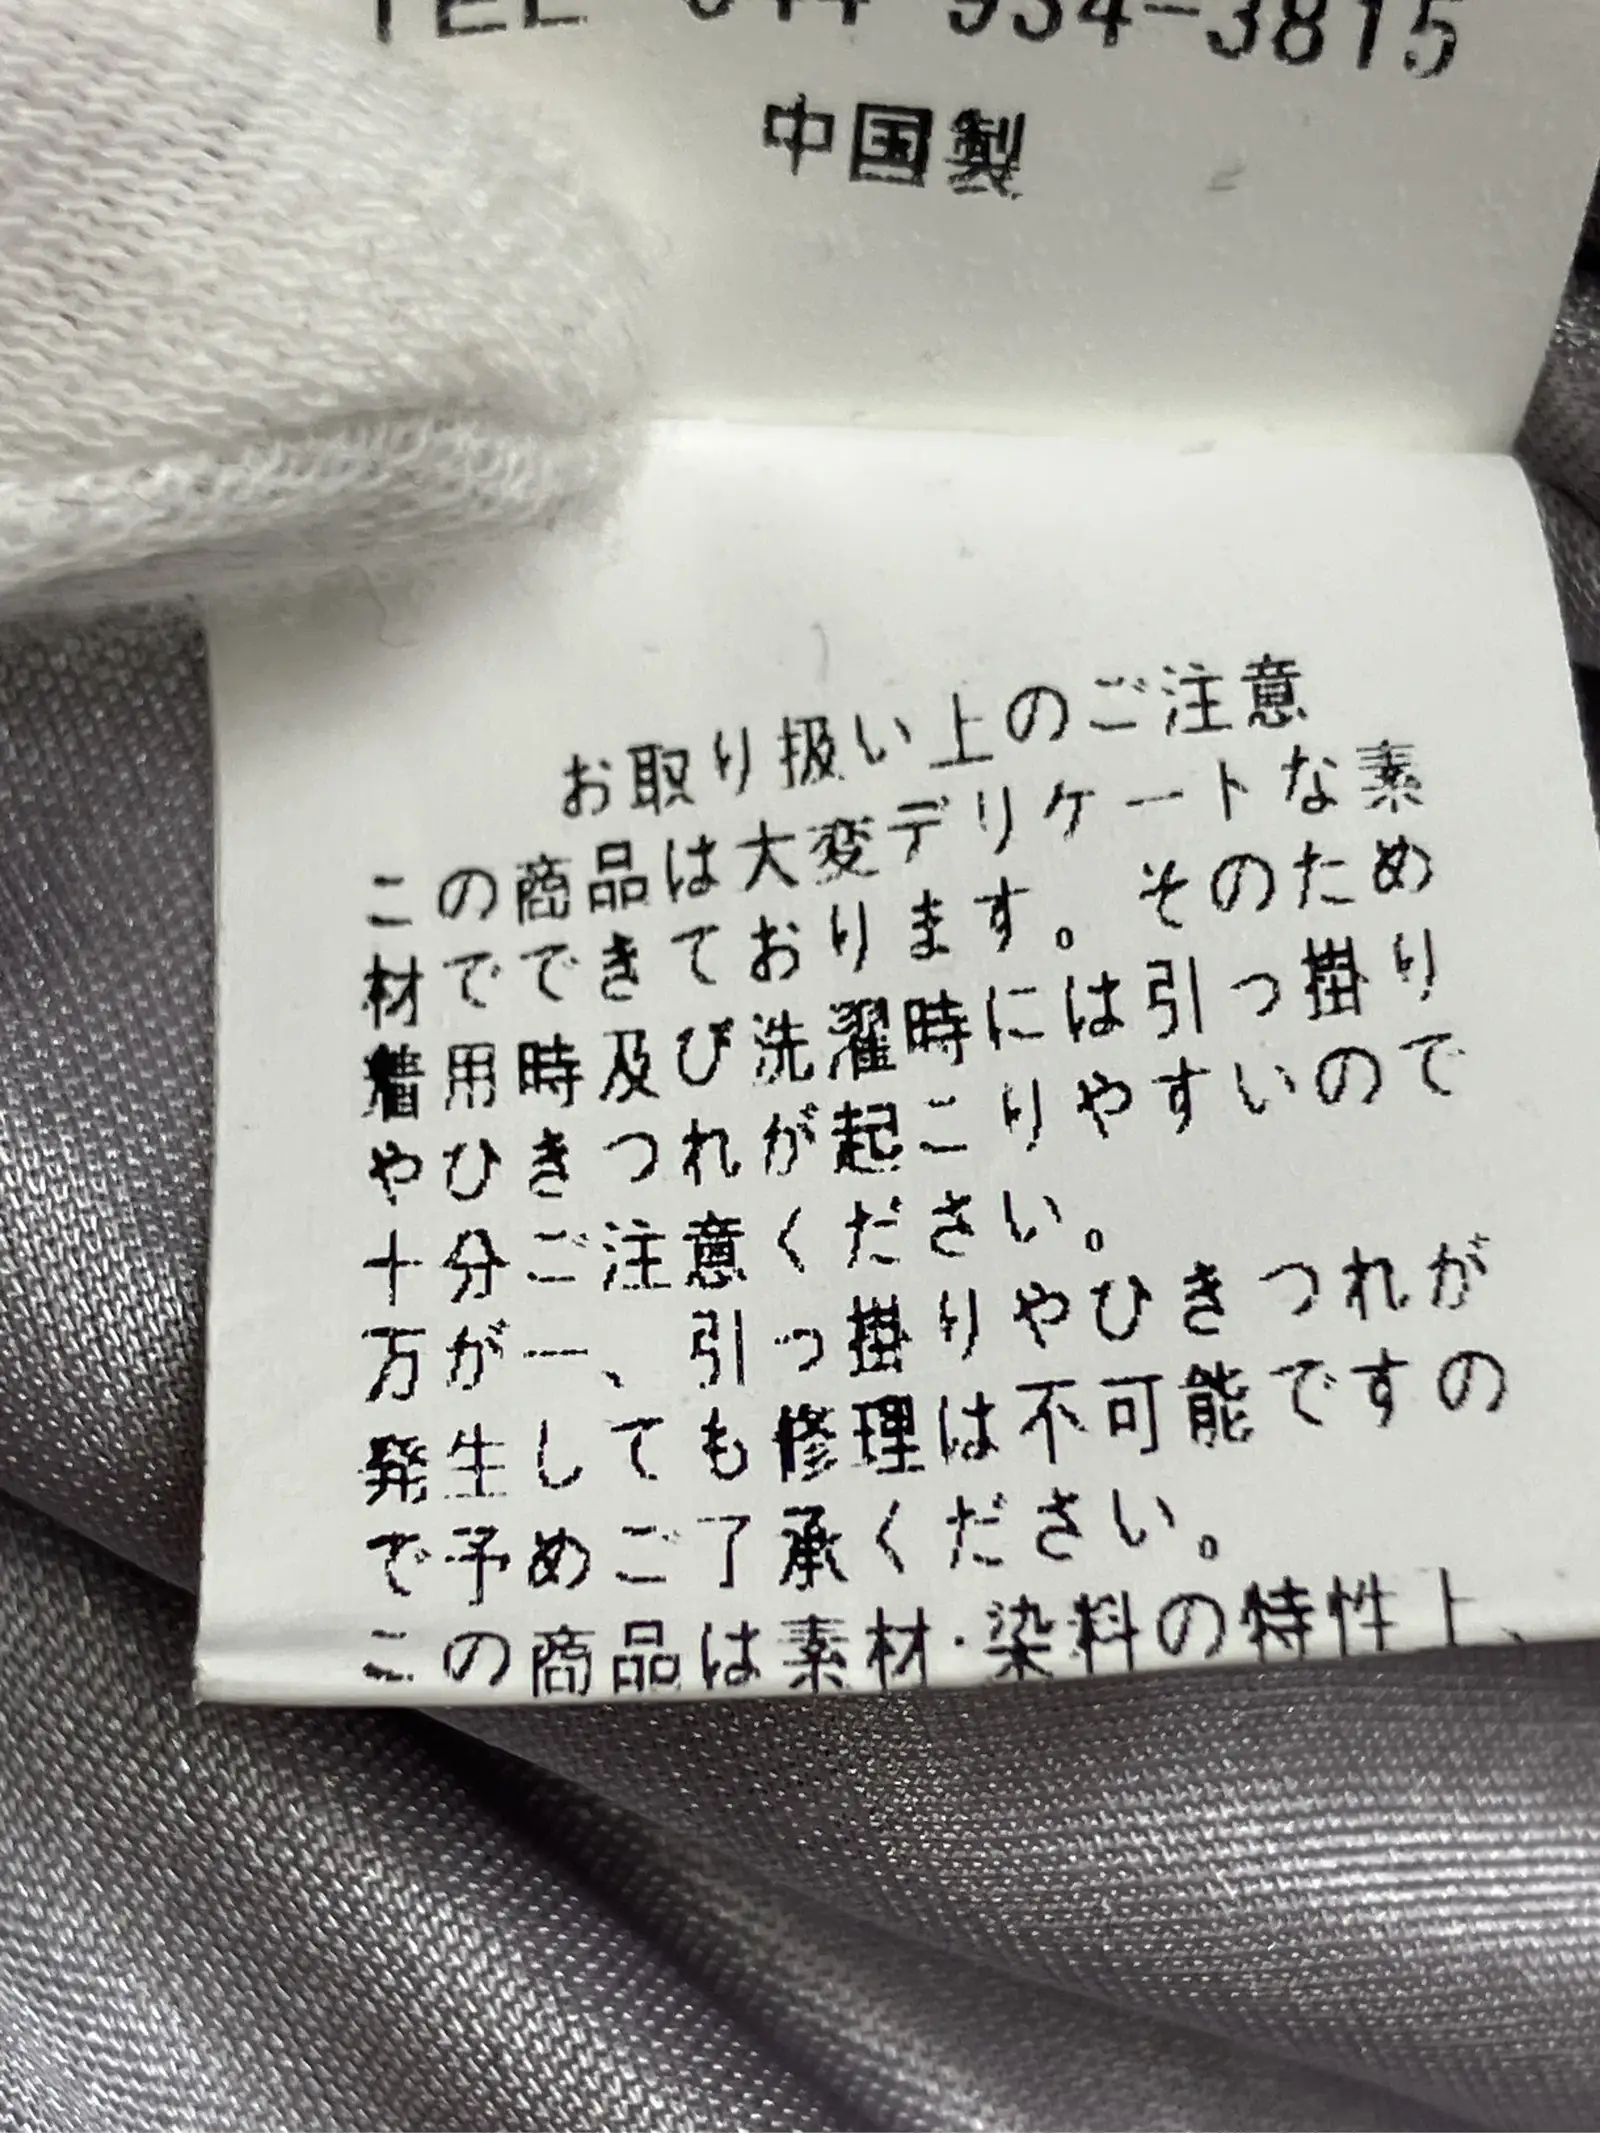 TEL 044-934-3815
中国製
お取り扱い上のご注意
この商品は大変デリケートな素
材でできております。そのため
着用時及び洗濯時には引っ掛り
やひきつれが起こりやすいので
十分ご注意ください。
万が一、引っ掛りやひきつれが
発生しても修理は不可能ですの
で予めご了承ください。
この商品は素材・染料の特性上、